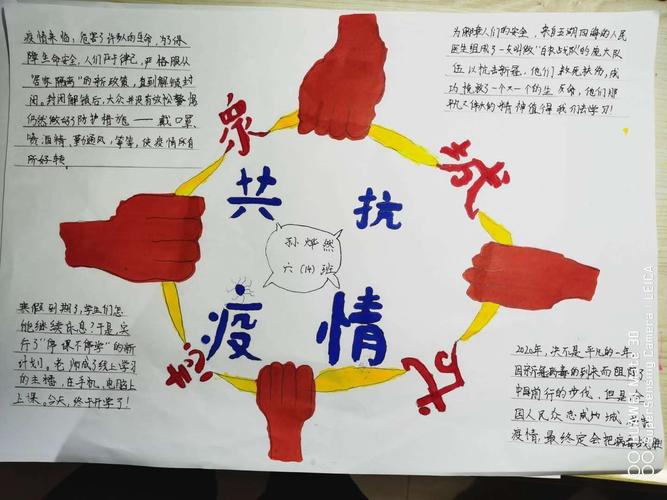 疫情来临，危害了许多人的生命，为了保
障生命安全，人们严于律己，严格服从
“居家隔离”的新政策，直到解锁封
闭。封闭解锁后，大众并没有放松警惕
仍然做好防护措施——戴口罩、
喷酒精、勤通风，等等，使疫情所有
所好转。
为保障人们的安全，来自五湖四海的人民
医生组成了一支叫做“白衣战队”的庞大队
伍以抗击新冠，他们救死扶伤，成
功挽救了一个又一个的生命，他们
伟大的精神值得我们去学习！
众
志
成
抗
共抗
疫情
孙烨然
六（14）班
寒假到期了，学生们怎
能继续休息？于是，实
行了“停课不停学”的新
计划。老师成了线上学习
的主播，在手机、电脑上
上课。今天，终于开学了！
2020年，决不是平凡的一年
因新冠病毒的到来而阻碍了
中国前行的步伐，但是全
国人民众志成城，
疫情，最终定会把病毒
HUAWEI Mate 30
SuperSensing Camera | LEICA